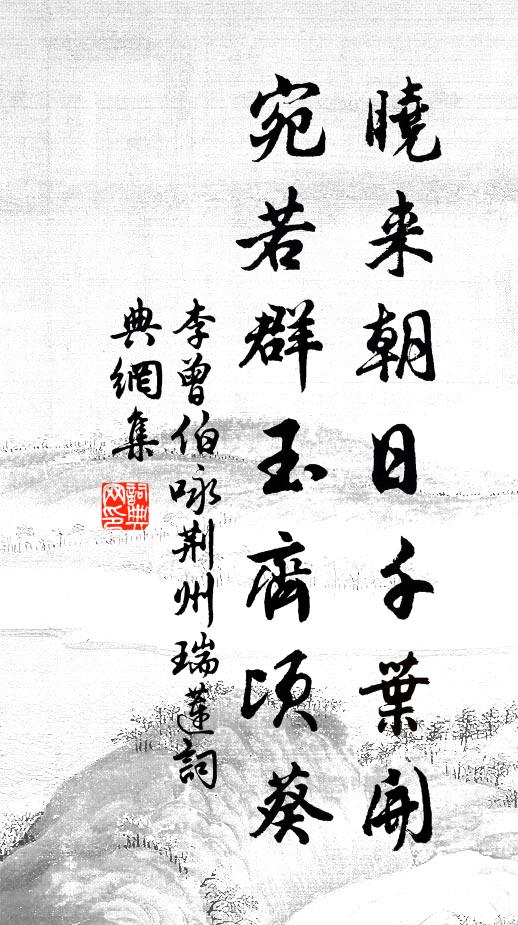 曉来朝日千葉開
宛若群玉齊頃葵
李曾伯咏荆州瑞蓮詞
典網集
詞典网印